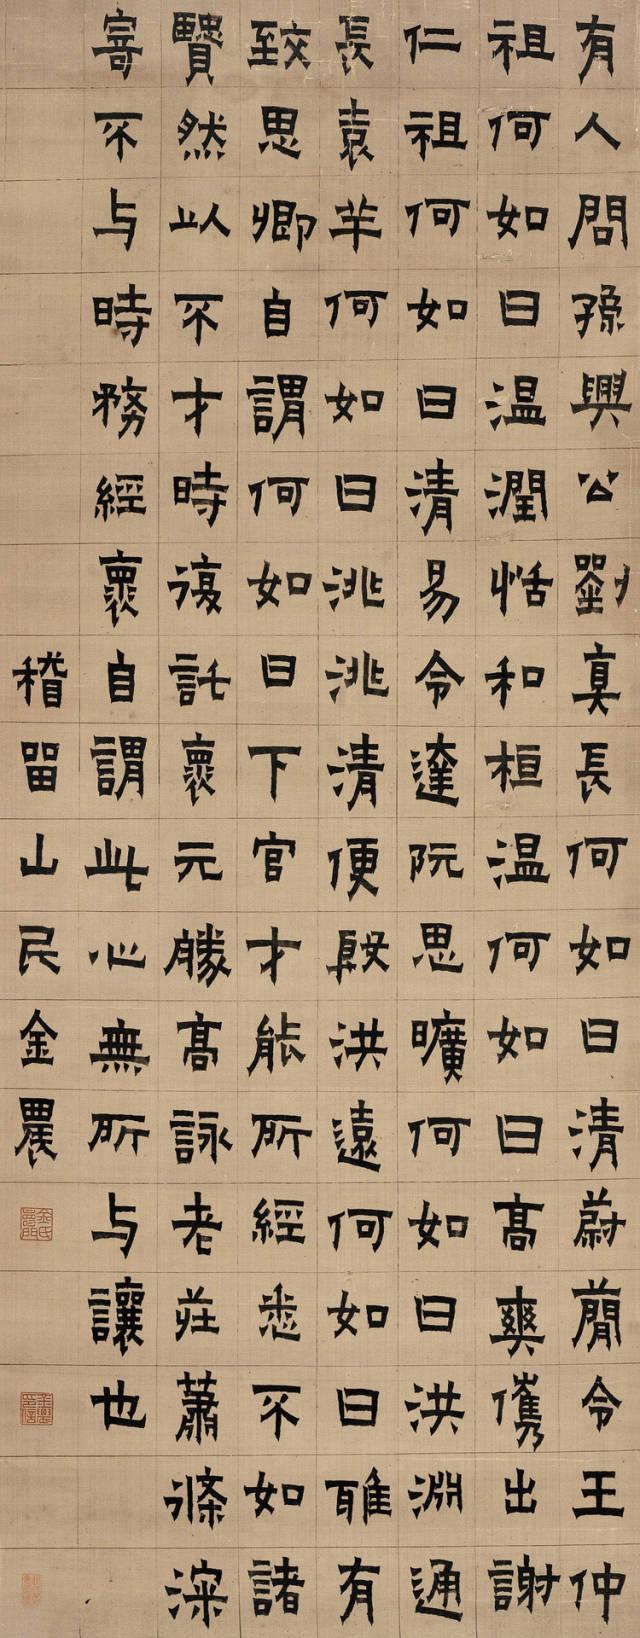 有人問孫興公劉真長何如曰清蔚蕳令王仲
祖何如曰温潤恬和桓温何如曰髙爽儁出謝
仁祖何如曰清易令達阮思曠何如曰洪淵通
長袁羊何如曰洮洮清便殷洪遠何如曰雖有
致思卿自謂何如曰下官才能所經悉不如諸
賢然以不才時復託褱元勝髙詠老莊蕭條深
寄不与時務經褱自謂此心無所与讓也
稽留山民金農
金農印信